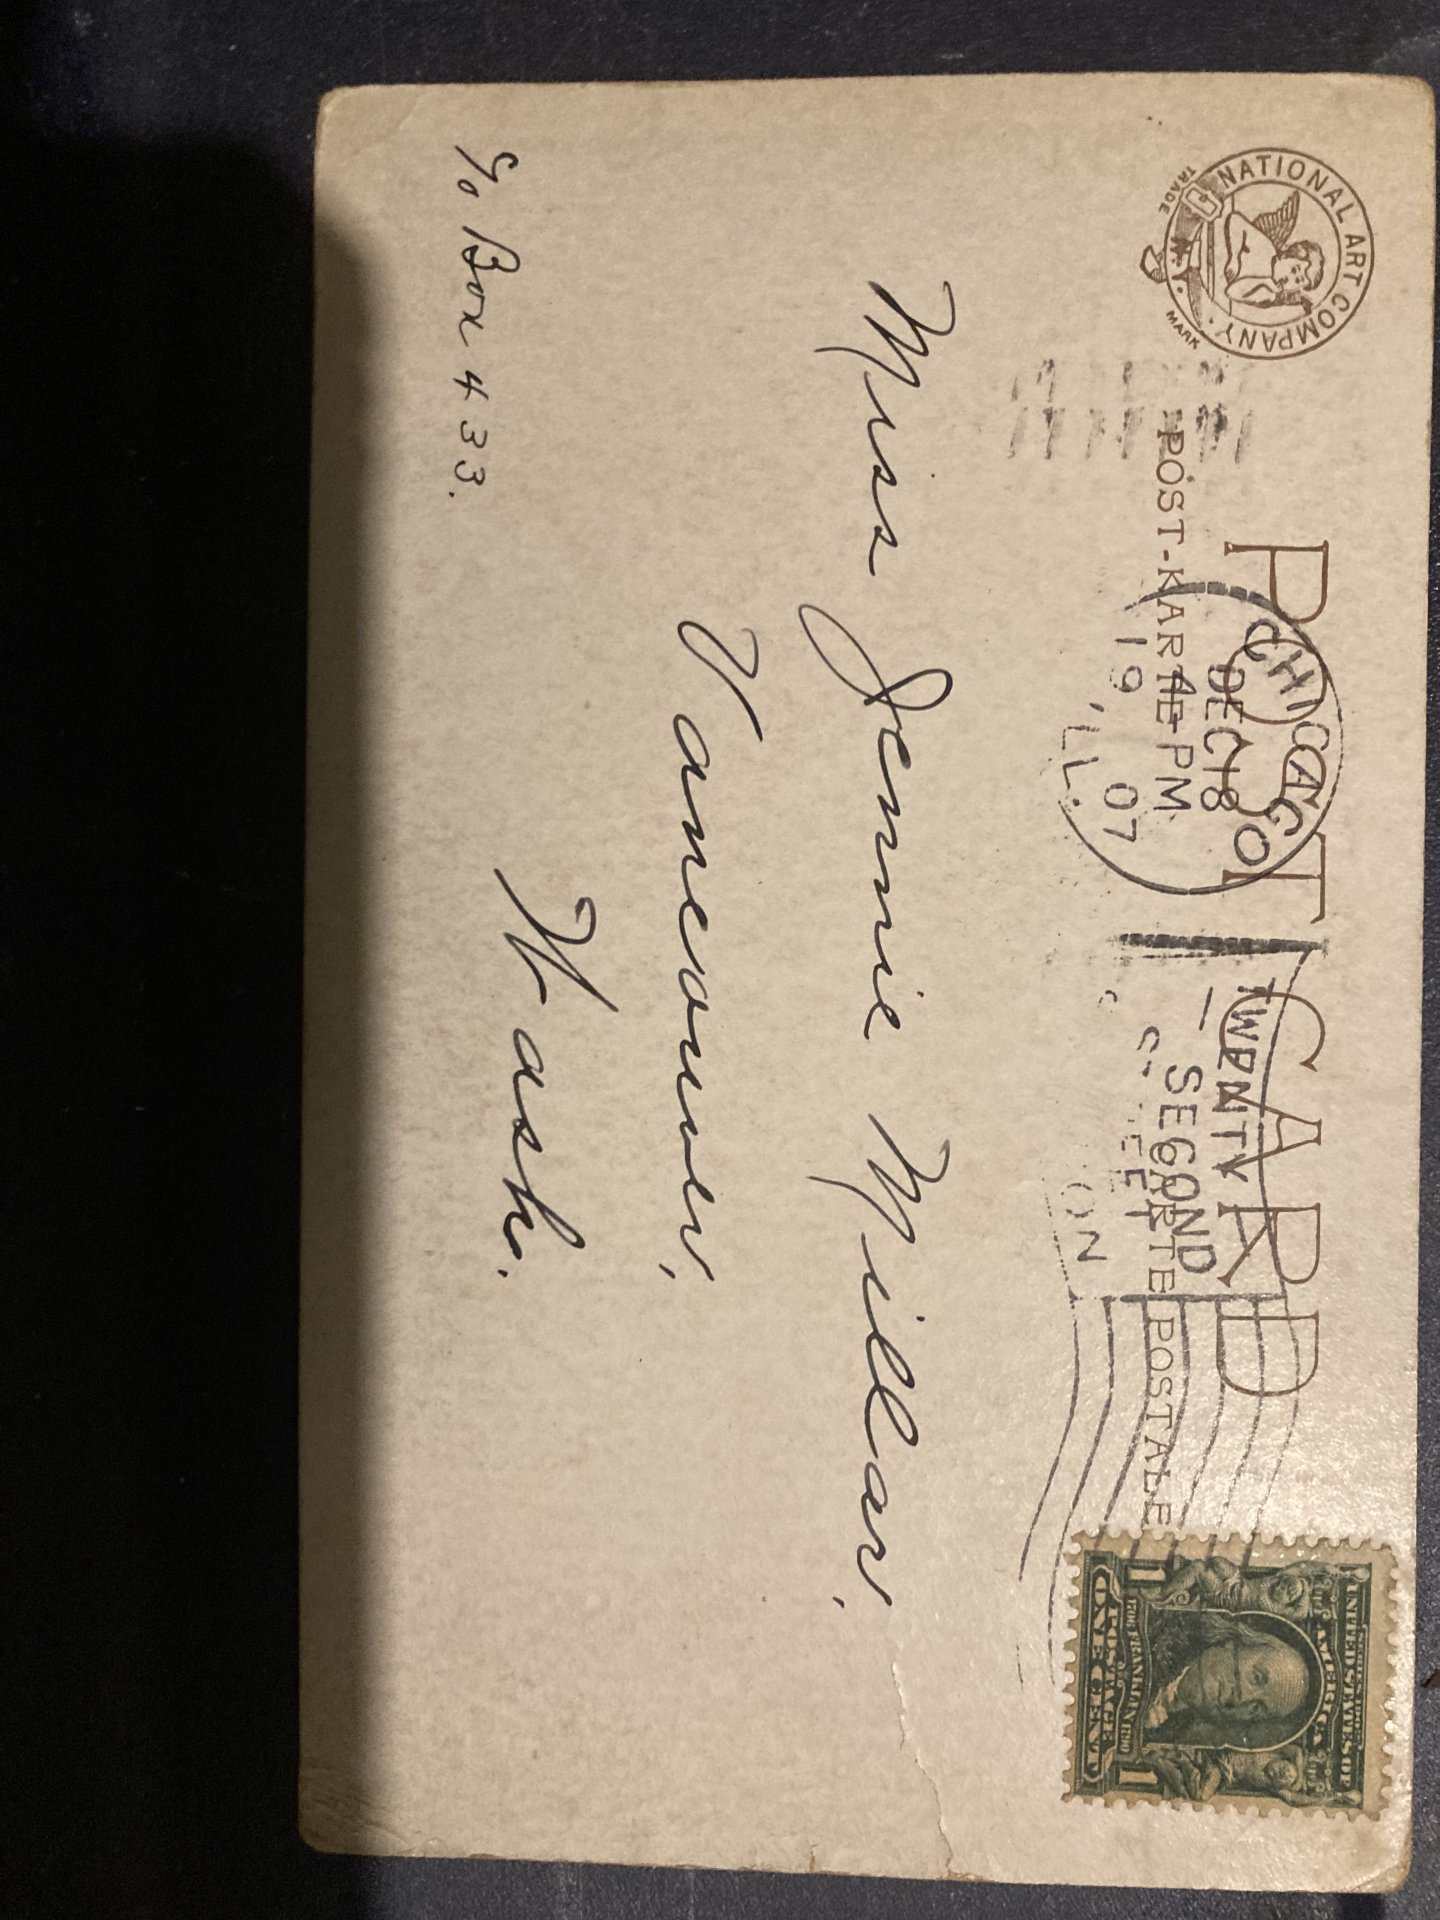 NATIONAL ART COMPANY
N.Y.
TRADE MARK
POST CARD
POST-KARTE CARTE POSTALE
CHICAGO, ILL.
DEC 18
4-PM
19 07
TWENTY
SECOND
ON
SERIES 1902
UNITED STATES OF
AMERICA
1706 FRANKLIN 1790
POSTAGE
1 ONE CENT 1
Miss Jennie Millar,
Vancouver,
Wash.
℅ Box 433.